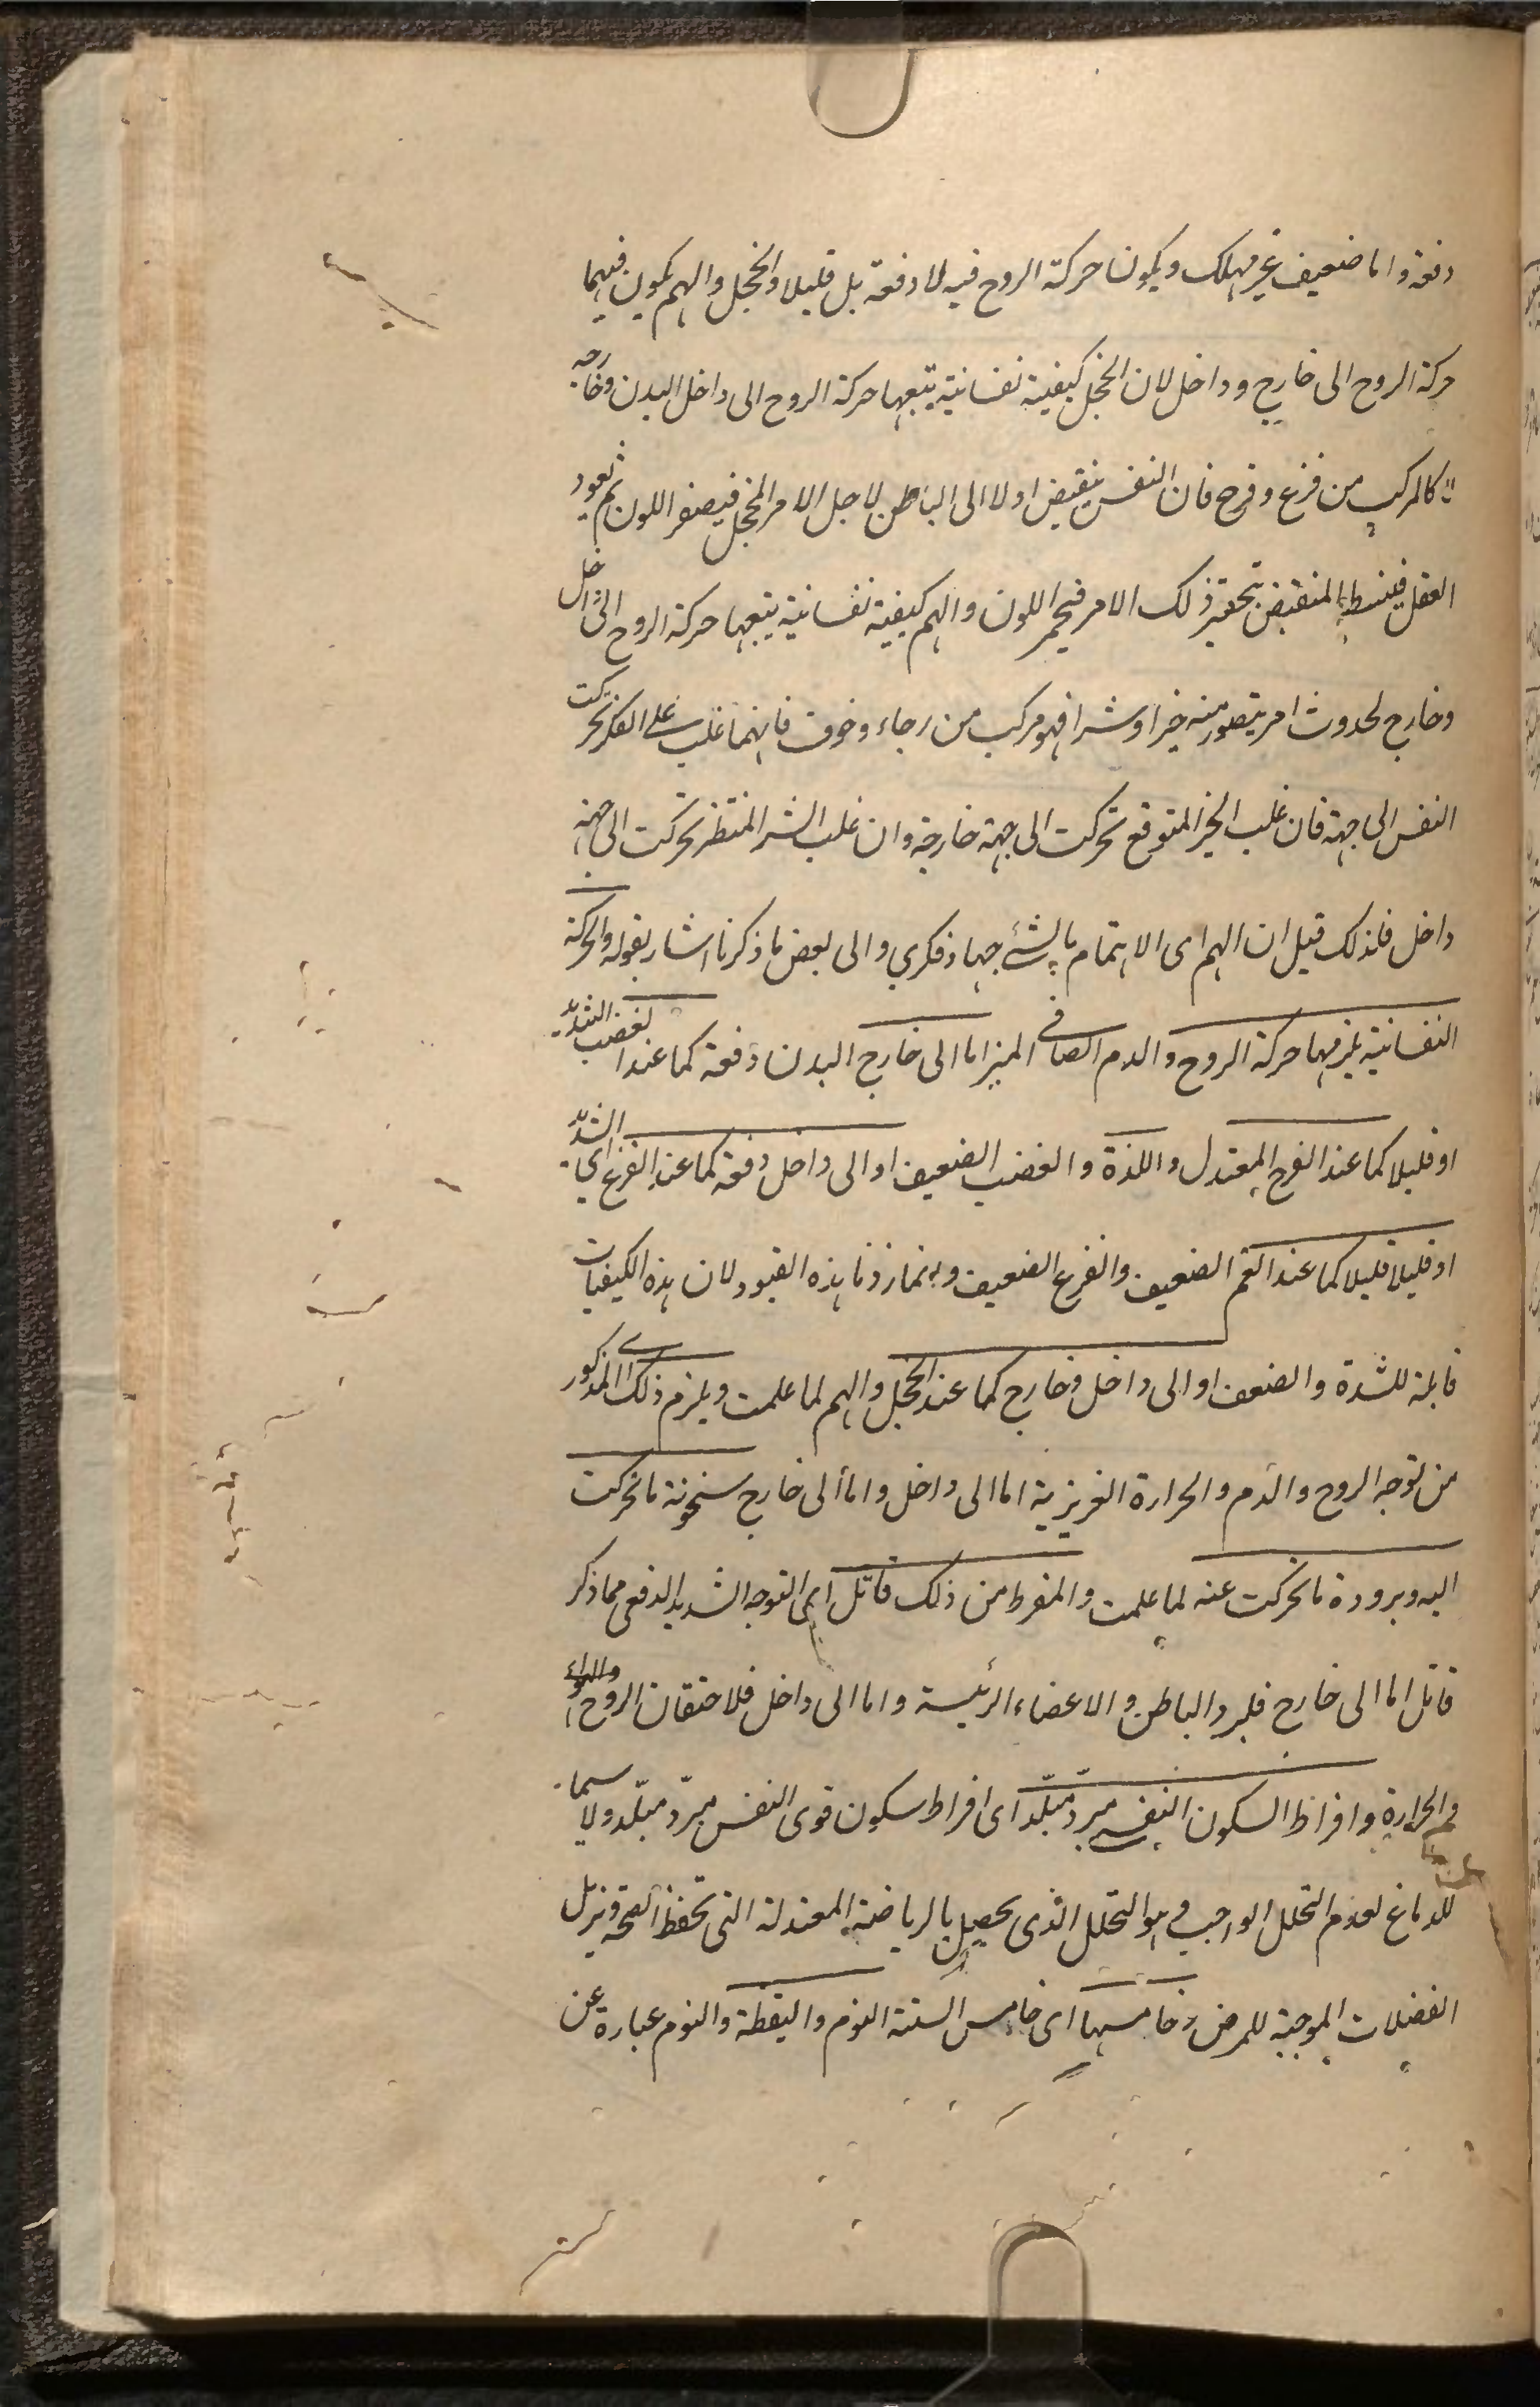 دفعة واما ضعيف غير مهلك ويكون حركة الروح فيه لا دفعة بل قليلا والخجل والهم يكون فيهما
حركة الروح الى خارج وداخل لان الخجل كيفية نفسانية يتبعها حركة الروح الى داخل البدن وخارجه
كالمركب من فزع وفرح فان النفس ينقبض اولا الى الباطن لاجل الامر المخجل فيصفر اللون ثم يعود
العقل فينبسط المنقبض بتحقير ذلك الامر فيحمر اللون والهم كيفية نفسانية يتبعها حركة الروح الى داخل
وخارج لحدوث امر يتصور منه خيرا وشرا فهو مركب من رجاء وخوف فايهما غلب على الفكر تحركت
النفس الى جهة فان غلب الخير المتوقع تحركت الى جهة خارجة وان غلب الشر المنتظر تحركت الى جهة
داخل فلذلك قيل ان الهم اى الاهتمام بالشئ جهاد فكري والى بعض ما ذكرنا اشار بقوله والحركة
النفسانية يلزمها حركة الروح والدم الصافى المنير اما الى خارج البدن دفعة كما عند الغضب الشديد
او قليلا كما عند الفرح المعتدل واللذة والغضب الضعيف او الى داخل دفعة كما عند الفزع اي الشديد
او قليلا قليلا كما عند الغم الضعيف والفزع الضعيف وانما زدنا هذه القيود لان هذه الكيفيات
قابلة للشدة والضعف او الى داخل وخارج كما عند الخجل والهم لما علمت ويلزم ذلك اى المذكور
من توجه الروح والدم والحرارة الغريزية اما الى داخل واما الى خارج سخونة ما تحركت
اليه وبرودة ما تحركت عنه لما علمت والمفرط من ذلك قاتل اى التوجه الشديد الدفعى مما ذكر
قاتل اما الى خارج فلبرد الباطن والاعضاء الرئيسة واما الى داخل فلاحتقان الروح
والحرارة وافراط السكون النفسى مبرد مبلد اى افراط سكون قوى النفس مبرد مبلد ولا سيما
للدماغ لعدم التحلل الواجب وهو التحلل الذى يحصل بالرياضة المعتدلة التى تحفظ الصحة وتزيل
الفضلات الموجبة للمرض وخامسها اى خامس الستة النوم واليقظة والنوم عبارة عن